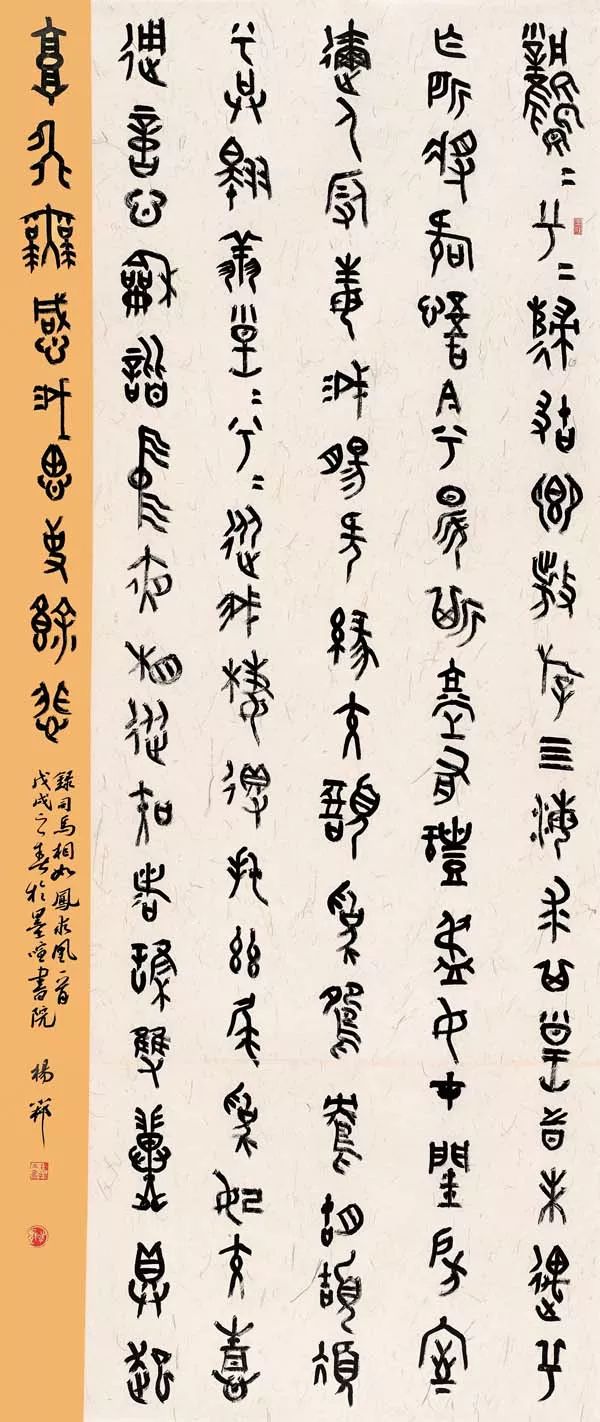 鳳=兮=歸故鄉敖斿四海求其皇時未遇兮
亡所將何悟今兮昇斯堂有豔淑女在閨房室
邇人遐毒我腸何緣交頸為鴛鴦胡頡頏
兮共翱翔皇=兮=從我棲得托茲尾為妃交情
通意心龢諧中夜相從知者誰雙翼俱起
高飛無感我思使餘悲
錄司馬相如鳳求凰一首
戊戌之春於墨喧書院 楊